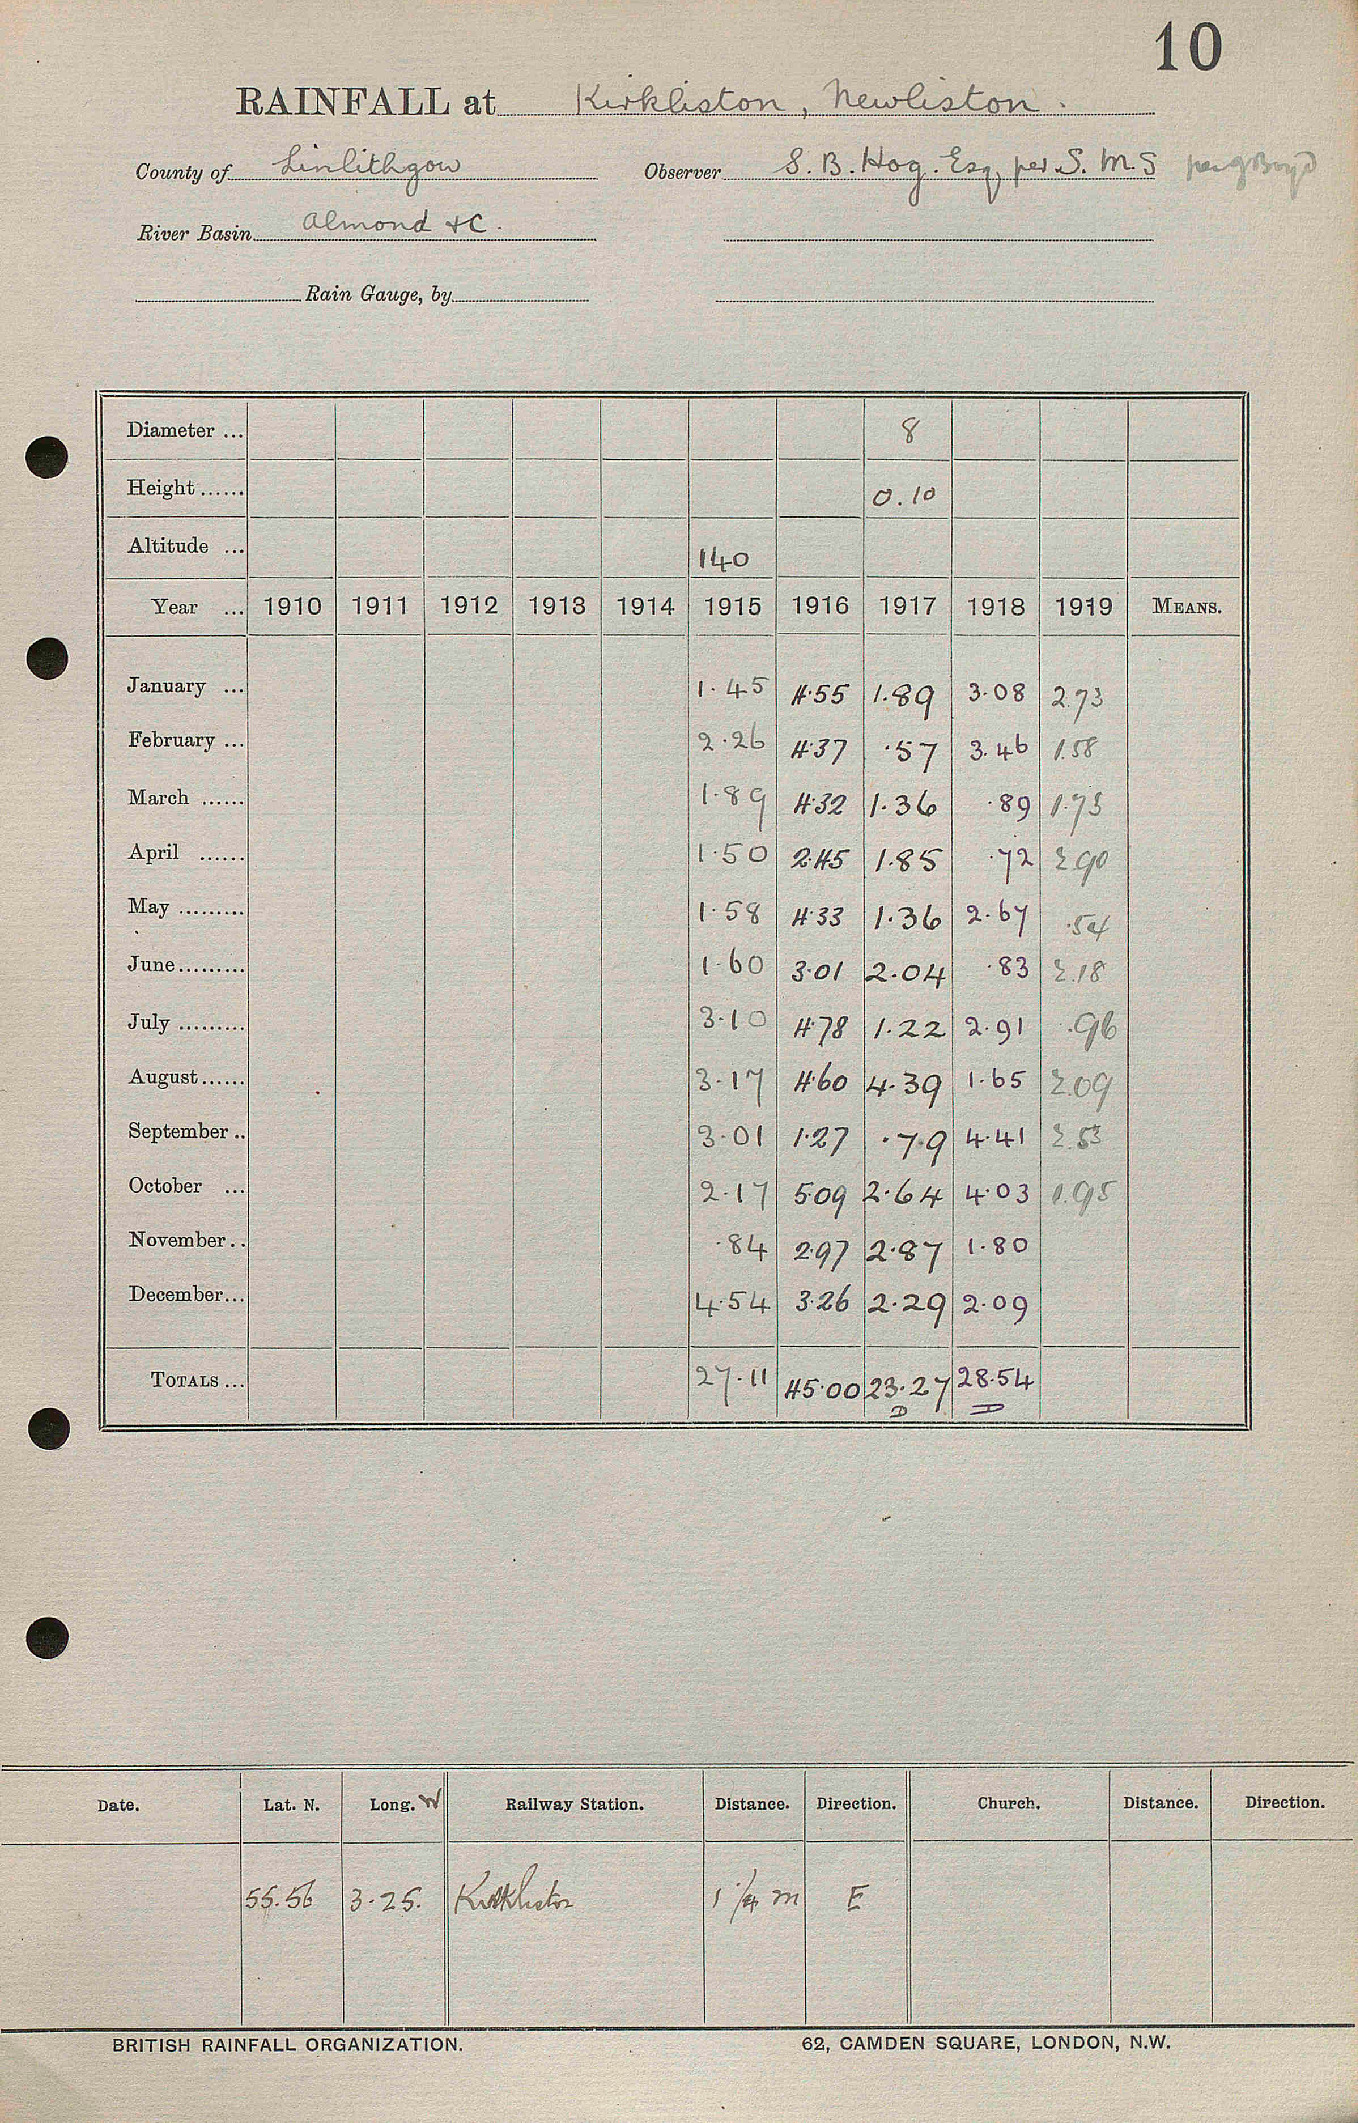 10
RAINFALL at Kirkliston, Newliston.
County of Linlithgow Observer S. B. Hog. Esq per S. M. S per J Boyd
River Basin Almond &c.
Rain Gauge, by
Diameter ... 8
Height ...... 0.10
Altitude ... 140
Year ... 1910 1911 1912 1913 1914 1915 1916 1917 1918 1919 MEANS.
January ... 1.45 4.55 1.89 3.08 2.73
February ... 2.26 4.37 .57 3.46 1.58
March ...... 1.89 4.32 1.36 .89 1.73
April ...... 1.50 2.45 1.85 .72 2.90
May ......... 1.58 4.33 1.36 2.67 .54
June......... 1.60 3.01 2.04 .83 2.18
July ......... 3.10 4.78 1.22 2.91 .96
August...... 3.17 4.60 4.39 1.65 2.09
September .. 3.01 1.27 .79 4.41 2.53
October ... 2.17 5.09 2.64 4.03 1.95
November.. .84 2.97 2.87 1.80
December... 4.54 3.26 2.29 2.09
TOTALS ... 27.11 45.00 23.27 28.54
D D
Date. Lat. N. Long. W Railway Station. Distance. Direction. Church. Distance. Direction.
55.56 3.25. Kirkliston 1 1/4 m E
BRITISH RAINFALL ORGANIZATION. 62, CAMDEN SQUARE, LONDON, N.W.